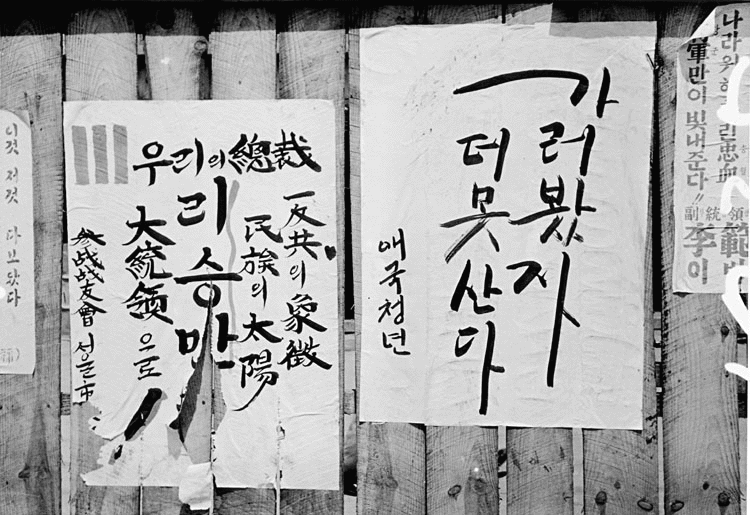 린忠血
만이 빛내준다!!
副統領
李
範
가러봤자
더못산다
애국청년
우리의 總裁
一反共의 象徵
民族의 太陽
리승만
大統領으로
友會 서울市
이것 저것 다보았다